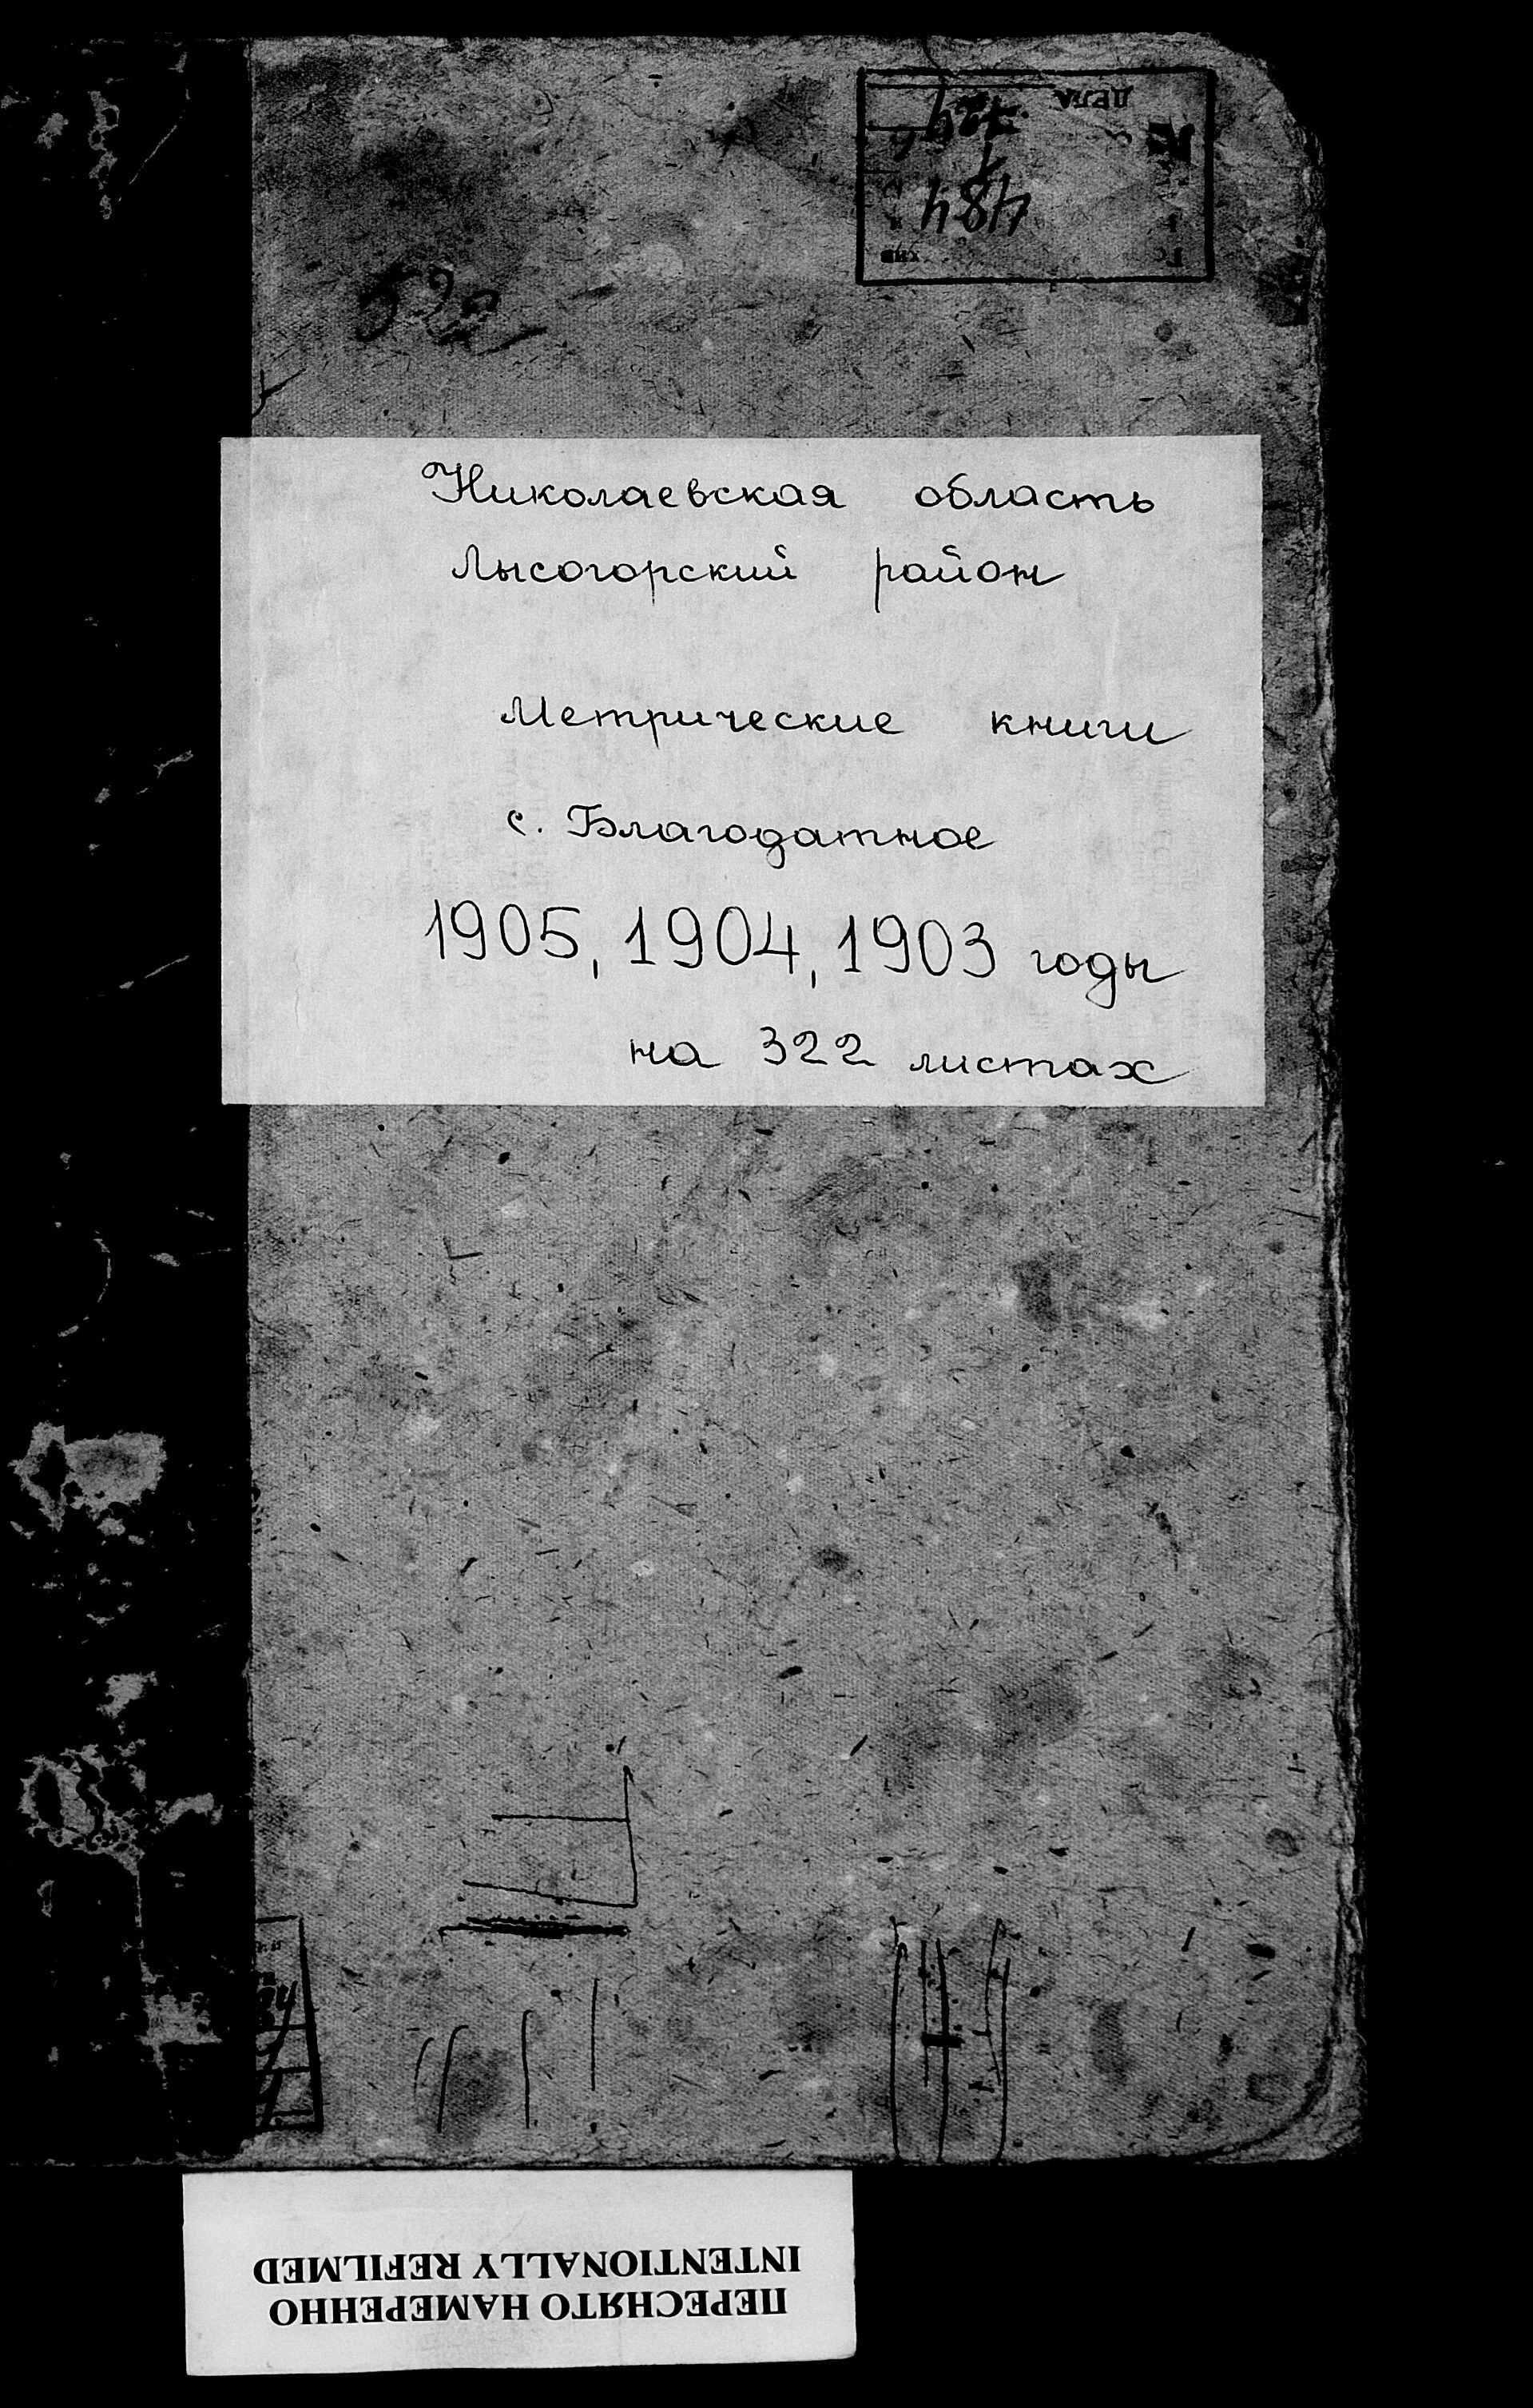 484
Николаевская область
Лысогорский район
Метрические книги
с. Благодатное
1905, 1904, 1903 годы
на 322 листах
ПЕРЕСНЯТО НАМЕРЕННО
INTENTIONALLY REFILMED